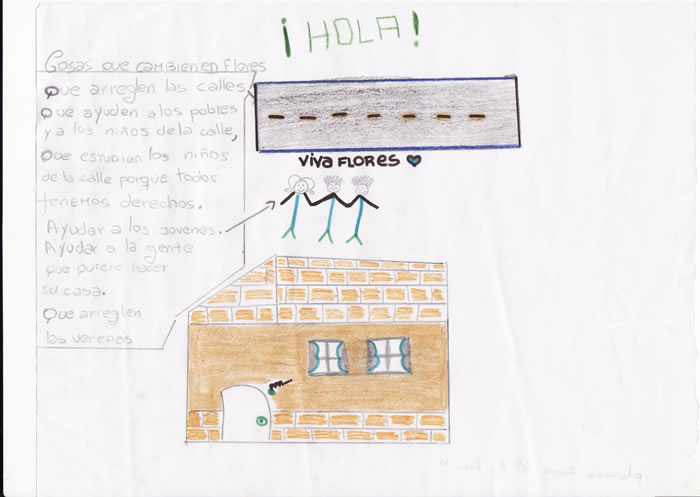 ¡HOLA!
Cosas que cambien en Flores
Que arreglen las calles
Que ayuden a los pobres
y a los niños de la calle,
Que estudian los niños
de la calle porque todos
tenemos derechos.
Ayudar a los jovenes.
Ayudar a la gente
que quiere hacer
su casa.
Que arreglen
las veredas
VIVA FLORES